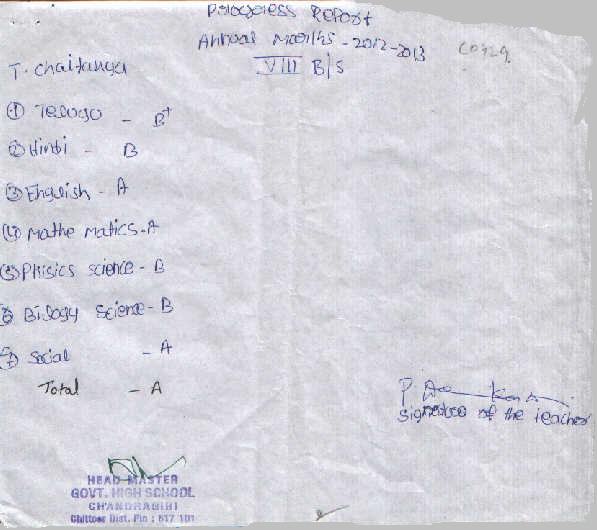 Prlogoress Report
Annual Marlks - 2012-2013
VIII B/S
T. Chaitanya
① Telugo - B+
② Hindi - B
③ English - A
④ Mathe matics - A
⑤ Phisics science - B
⑥ Bilogy Science - B
⑦ Social - A
Total - A
signatuo of the teacher
HEAD MASTER
GOVT. HIGH SCHOOL
CHANDRAGIRI
Chittoor Dist. Pin : 517 101